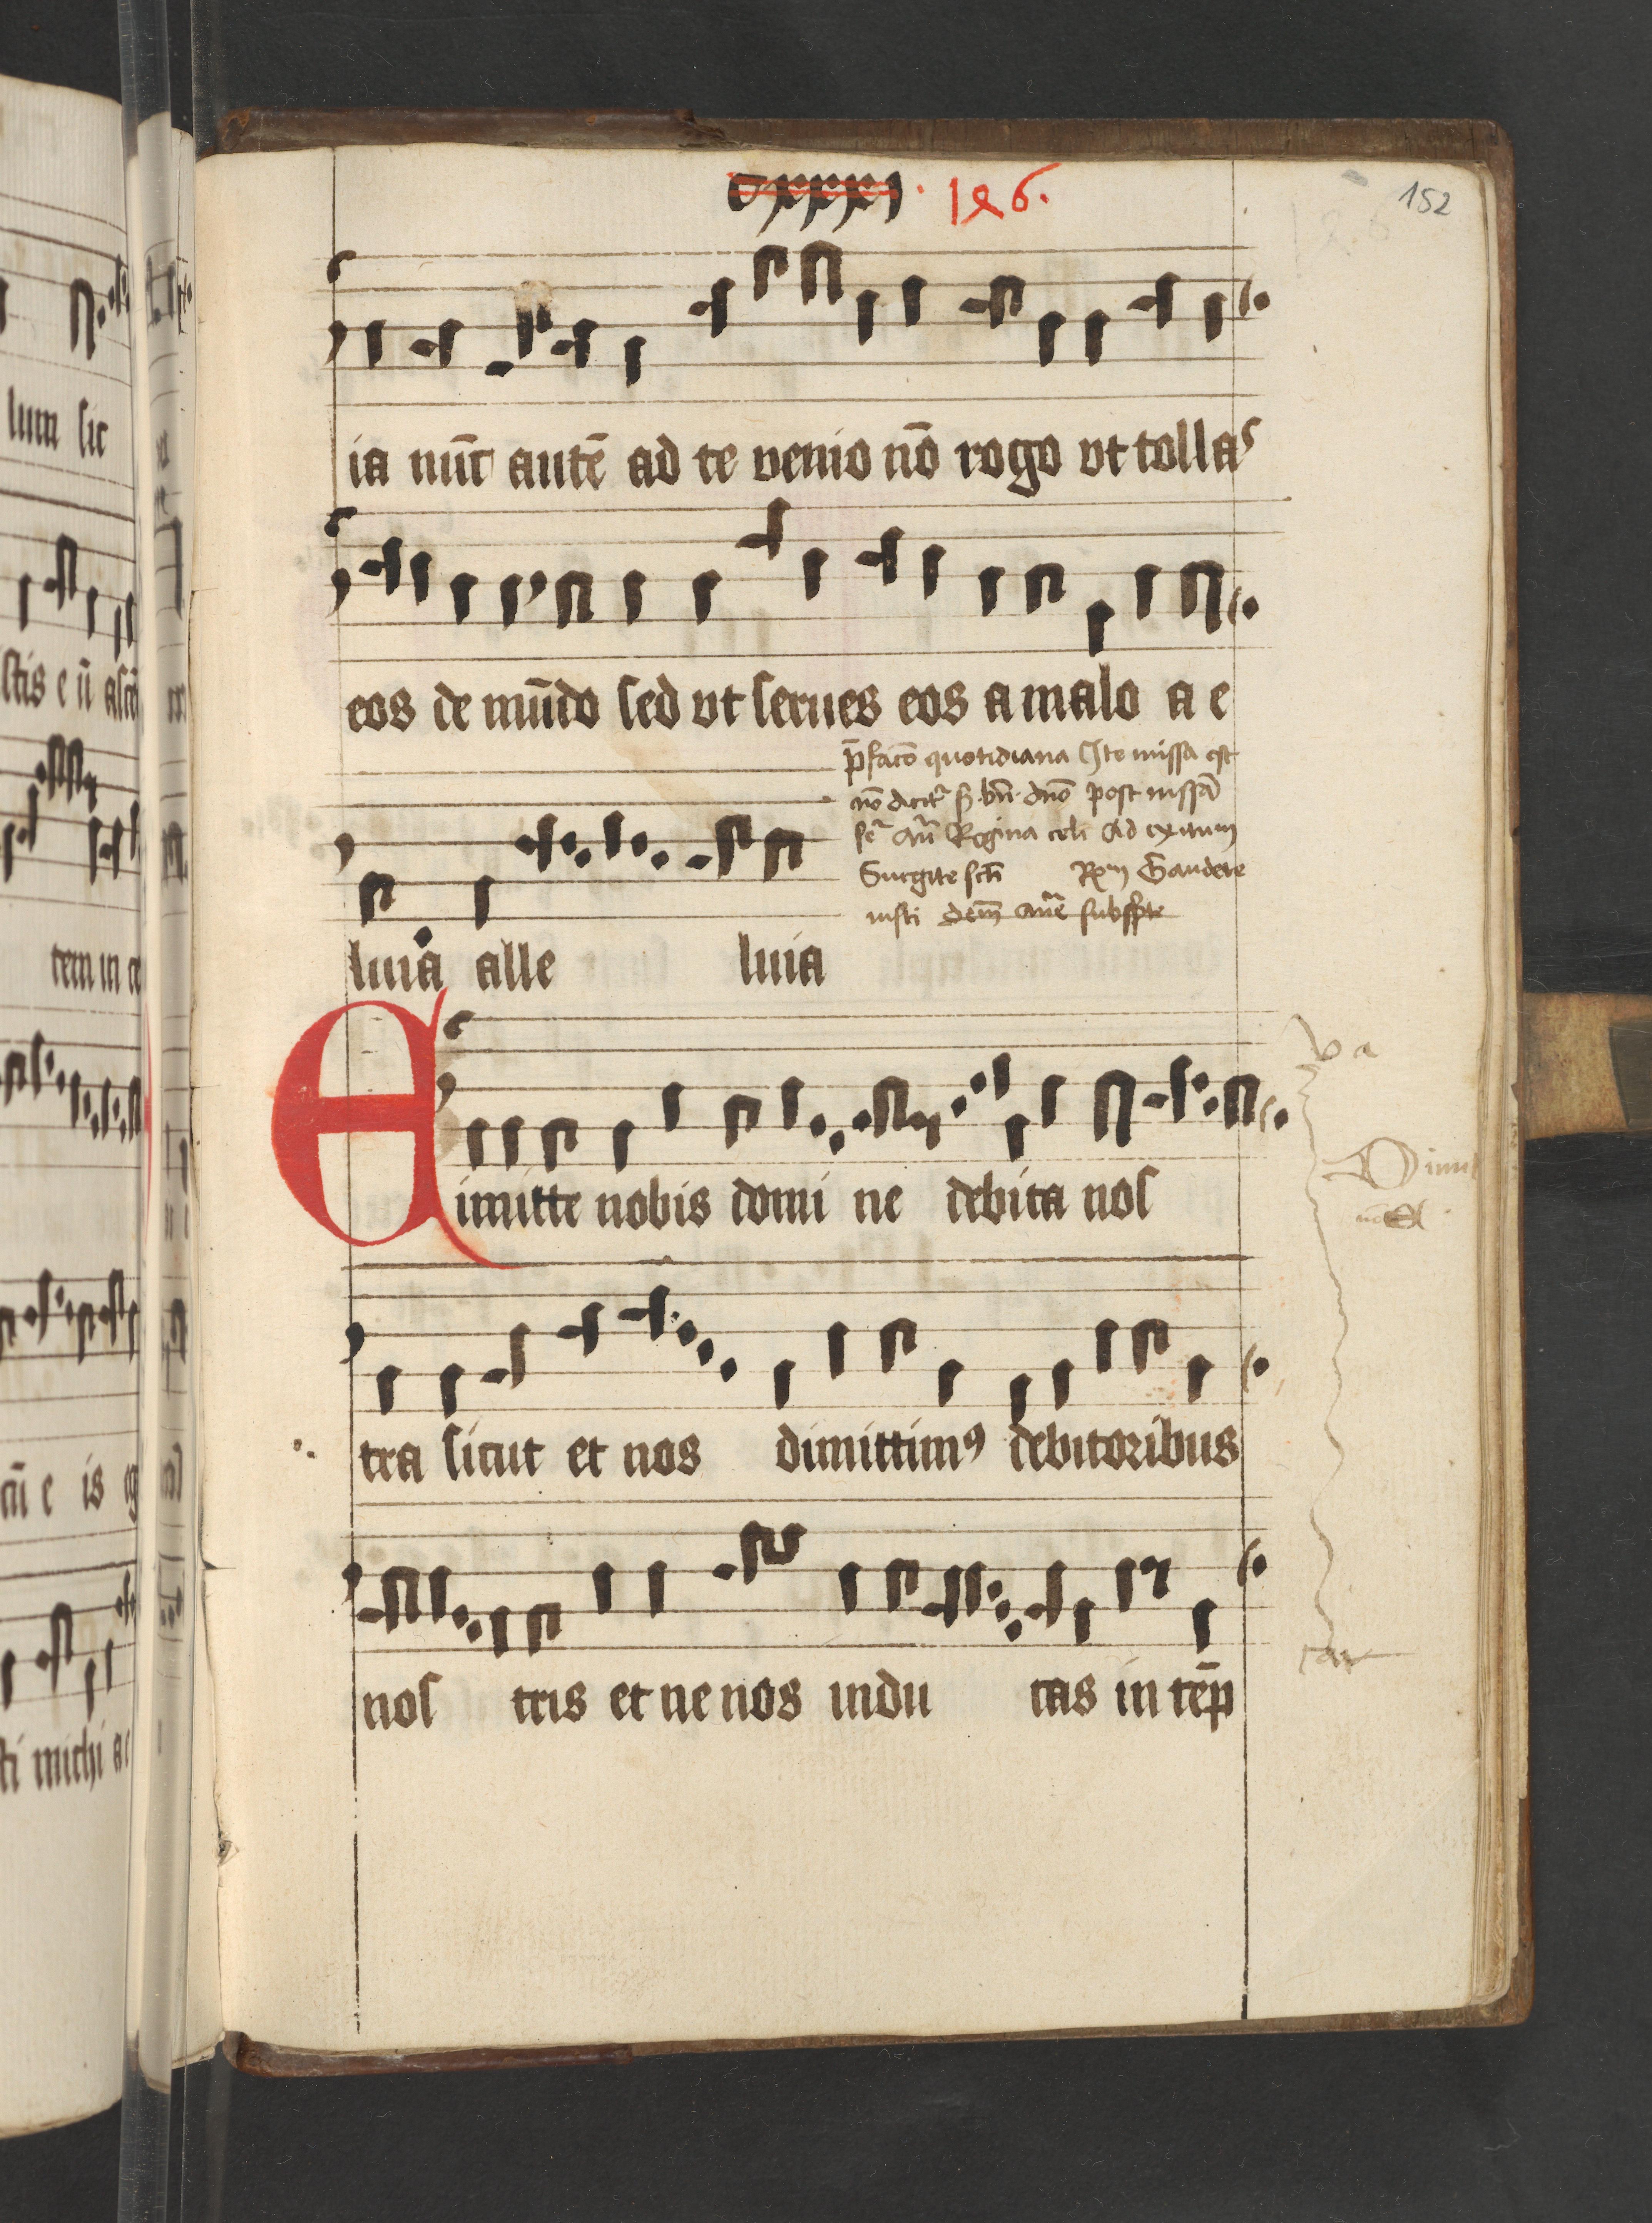 cxxxi. 126.
152
ia nūc autē ad te venio nō rogo vt tollas
eos de mūdo sed vt serues eos a malo a e
p̄facō quotidiana Ite missa est
nō dicit̄ s̄ bn̄ dn̄o post missā
Regina celi ad exitum
Surgite sc̄i Gaudete
iusti
luia alle luia
imitte nobis domi ne debita nos
tra sicut et nos dimittimꝰ debitoribus
nos tris et ne nos indu cas in tēp
lum sic
tem in ce
sti michi ac
va